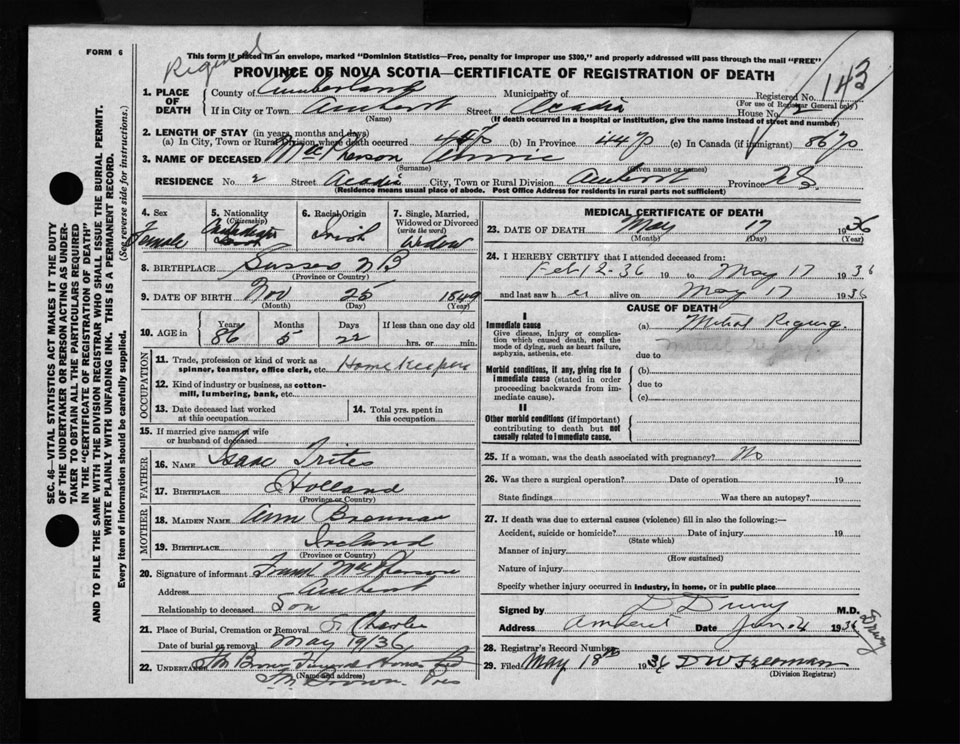 FORM 6
This form if placed in an envelope, marked "Dominion Statistics—Free, penalty for improper use $300," and properly addressed will pass through the mail "FREE"
PROVINCE OF NOVA SCOTIA—CERTIFICATE OF REGISTRATION OF DEATH
143
1. PLACE OF DEATH
County of Cumberland Municipality of Registered No.
(For use of Registrar General only)
If in City or Town Amherst Street Acadia House No. 2
(Name) (If death occurred in a hospital or institution, give the name instead of street and number)
2. LENGTH OF STAY (in years, months and days)
(a) In City, Town or Rural Division where death occurred (b) In Province 44 (c) In Canada (if immigrant) 86
3. NAME OF DECEASED MacPherson Annie
(Surname) (Given name or names)
RESIDENCE No. 2 Street Acadia City, Town or Rural Division Amherst Province N.S.
(Residence means usual place of abode. Post Office Address for residents in rural parts not sufficient)
4. Sex Female
5. Nationality (Citizenship) Canadian
6. Racial Origin Irish
7. Single, Married, Widowed or Divorced (write the word) Widow
8. BIRTHPLACE Sussex N B
(Province or Country)
9. DATE OF BIRTH Nov 25 1849
(Month) (Day) (Year)
10. AGE in Years 86 Months 5 Days 22 If less than one day old
hrs. or min.
OCCUPATION
11. Trade, profession or kind of work as spinner, teamster, office clerk, etc. Home Keeper
12. Kind of industry or business, as cotton-mill, lumbering, bank, etc.
13. Date deceased last worked at this occupation
14. Total yrs. spent in this occupation
15. If married give name of wife or husband of deceased
FATHER
16. NAME Isaac Trites
17. BIRTHPLACE Holland
(Province or Country)
MOTHER
18. MAIDEN NAME Ann Brennan
19. BIRTHPLACE Ireland
(Province or Country)
20. Signature of informant Frank MacPherson
Address Amherst
Relationship to deceased Son
21. Place of Burial, Cremation or Removal St Charles
Date of burial or removal May 19/36
22. UNDERTAKER Funeral Home
(Name and address)
Brown Pres
MEDICAL CERTIFICATE OF DEATH
23. DATE OF DEATH May 17 1936
(Month) (Day) (Year)
24. I HEREBY CERTIFY that I attended deceased from:
Feb 12-36 19 to May 17 1936
and last saw her alive on May 17 1936
CAUSE OF DEATH
I
Immediate cause
Give disease, injury or complication which caused death, not the mode of dying, such as heart failure, asphyxia, asthenia, etc.
(a) Mitral Regurg.
due to
Morbid conditions, if any, giving rise to immediate cause (stated in order proceeding backwards from immediate cause).
(b)
due to
(c)
II
Other morbid conditions (if important) contributing to death but not causally related to immediate cause.
25. If a woman, was the death associated with pregnancy? No
26. Was there a surgical operation? Date of operation 19
State findings Was there an autopsy?
27. If death was due to external causes (violence) fill in also the following:—
Accident, suicide or homicide? Date of injury 19
(State which)
Manner of injury
(How sustained)
Nature of injury
Specify whether injury occurred in industry, in home, or in public place
Signed by D Drury M.D.
Address Amherst Date June 4 1936
Drury
28. Registrar's Record Number
29. Filed May 18th 1936 D W Freeman
(Division Registrar)
SEC. 46—VITAL STATISTICS ACT MAKES IT THE DUTY
OF THE UNDERTAKER OR PERSON ACTING AS UNDER-
TAKER TO OBTAIN ALL THE PARTICULARS REQUIRED
IN THE "CERTIFICATE OF REGISTRATION OF DEATH"
AND TO FILE THE SAME WITH THE DIVISION REGISTRAR WHO SHALL ISSUE THE BURIAL PERMIT.
WRITE PLAINLY WITH UNFADING INK. THIS IS A PERMANENT RECORD.
Every item of information should be carefully supplied. (See reverse side for instructions.)